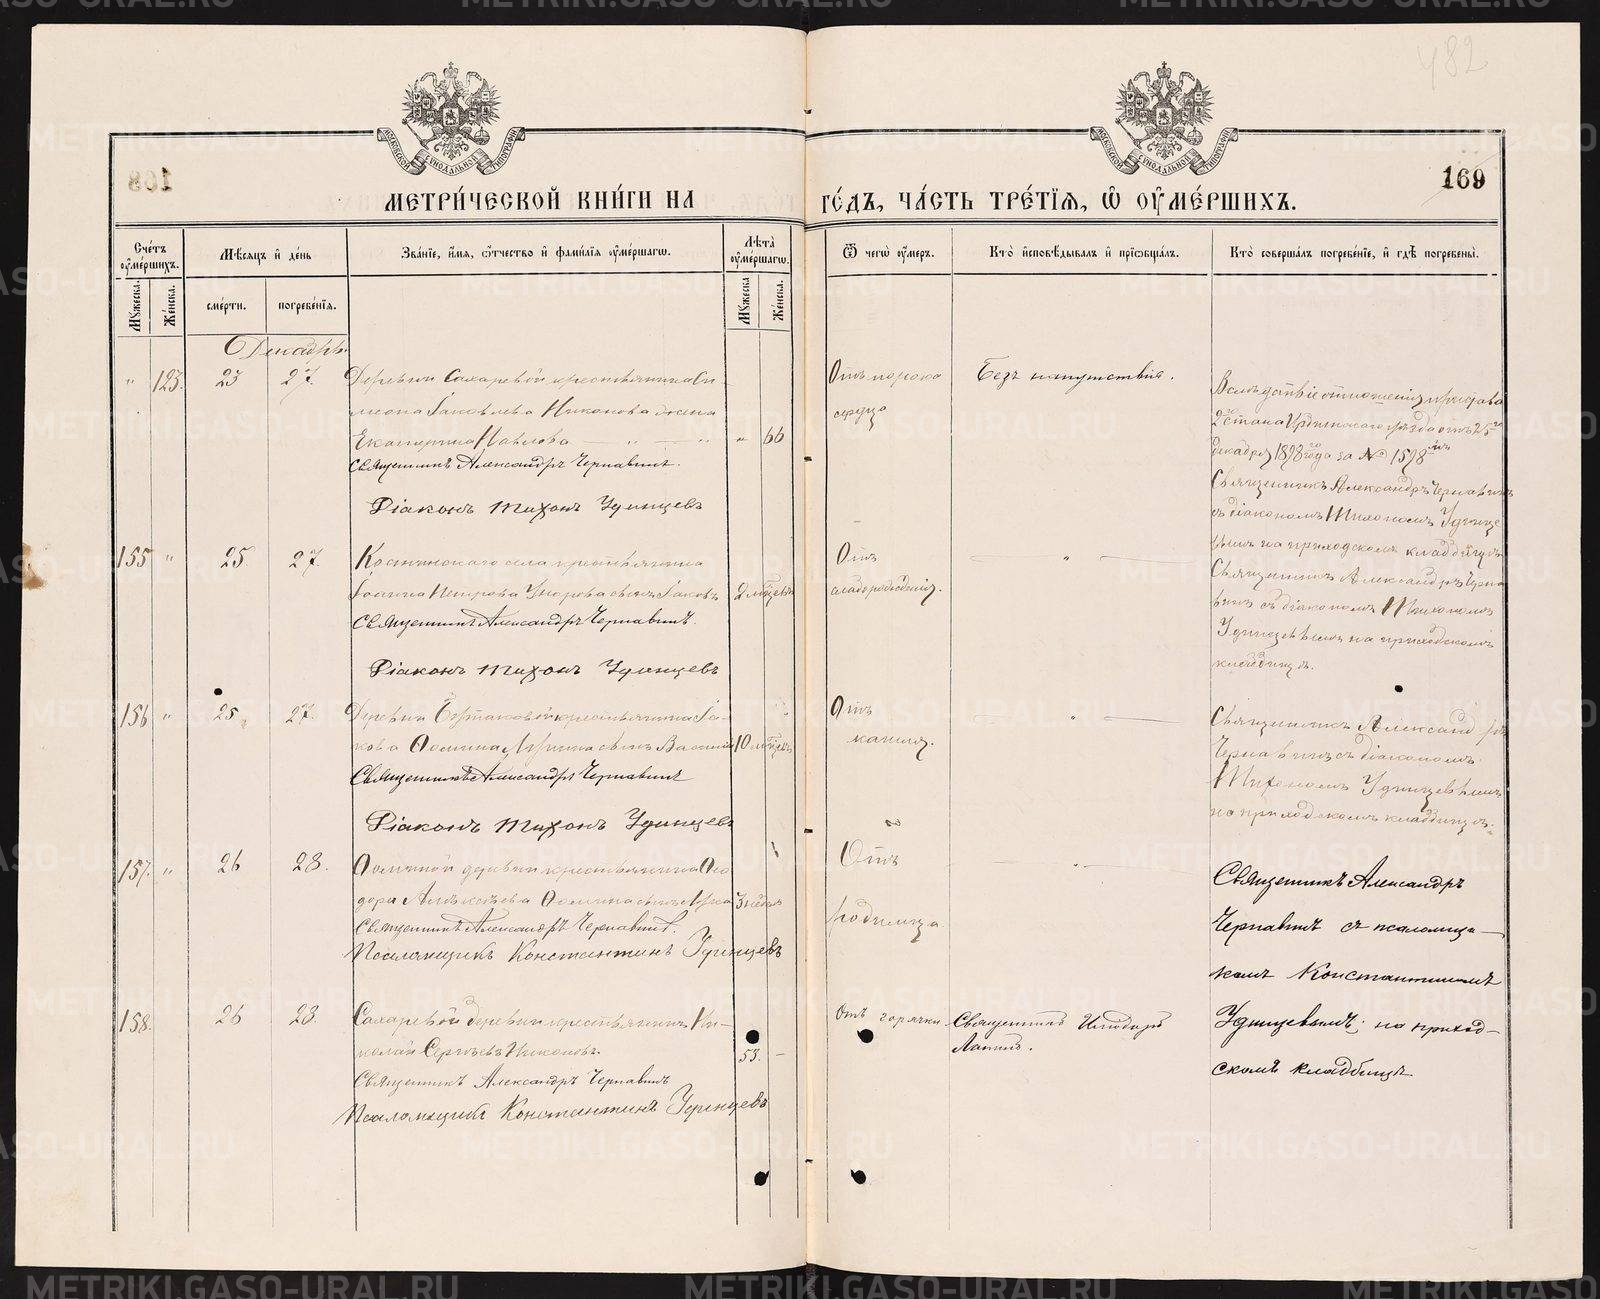 482
168
169
МЕТРИ́ЧЕСКОЙ КНИ́ГИ НА ГО́ДЪ, ЧА́СТЬ ТРЕ́ТІЯ, Ѽ ОУ҆МЕ́РШИХЪ.
Сче́тъ оу҆ме́ршихъ.
Мꙋ́жеска.
Же́нска.
Мѣ́сѧцъ и҆ де́нь
сме́рти.
погребе́нїѧ.
Зва́нїе, и҆́мѧ, ѻ҆́тчество и҆ фами́лїѧ оу҆ме́ршагѡ.
Лѣ́та оу҆ме́ршагѡ.
Мꙋ́жеска
Же́нска.
Ѿ чегѡ̀ оу҆́меръ.
Кто̀ и҆сповѣ́дывалъ и҆ прїѡбща́лъ.
Кто̀ соверша́лъ погребе́нїе, и҆ гдѣ̀ погребены̀.
Декабрь.
" 123. 23 27.
Деревни Сахаревой крестьянина Си
меона Іаковлева Никонова жена
Екатерина Павлова — " — "
" 66
Священникъ Александръ Чернавинъ.
Діаконъ Тихонъ Удинцевъ
Отъ порока
сердца
Безъ напутствія.
Вслѣдствіе отношенія пристава
2го стана Ирбитскаго уѣзда отъ 25го
декабря 1898го года за № 1598мъ
Священникъ Александръ Чернавинъ
съ діакономъ Тихономъ Удинце
вымъ на приходскомъ кладбищѣ
155 " 25 27.
Костинскаго села крестьянина
Іоанна Петрова сынъ Іаковъ
2 мѣсяцевъ
Священникъ Александръ Чернавинъ.
Діаконъ Тихонъ Удинцевъ
Отъ
слаборожденія.
— " —
Священникъ Александръ Черна
винъ съ діакономъ Тихономъ
Удинцевымъ на приходскомъ
кладбищѣ.
156 " 25 27.
Деревни крестьянина Іа-
кова Ѳомина сынъ Василій
10 мѣсяцевъ
Священникъ Александръ Чернавинъ
Діаконъ Тихонъ Удинцевъ
Отъ
кашля.
— " —
Священникъ Александръ
Чернавинъ съ діакономъ
Тихономъ Удинцевымъ
на приходскомъ кладбищѣ.
157. " 26 28.
Ѳоминой деревни крестьянина Ѳео
дора Алексѣева Ѳомина сынъ
3 недѣль
Священникъ Александръ Чернавинъ.
Псаломщикъ Константинъ Удинцевъ
Отъ
родимца.
— " —
Священникъ Александръ
Чернавинъ съ псаломщи—
комъ Константиномъ
Удинцевымъ; на приход—
скомъ кладбищѣ
158. 26 28.
Сахаревой деревни крестьянинъ Ни—
колай Сергѣевъ Никоновъ.
53. —
Священникъ Александръ Чернавинъ
Псаломщикъ Константинъ Удинцевъ
Отъ горячки
Священникъ Исидоръ
Лапинъ.
METRIKI.GASO-URAL.RU